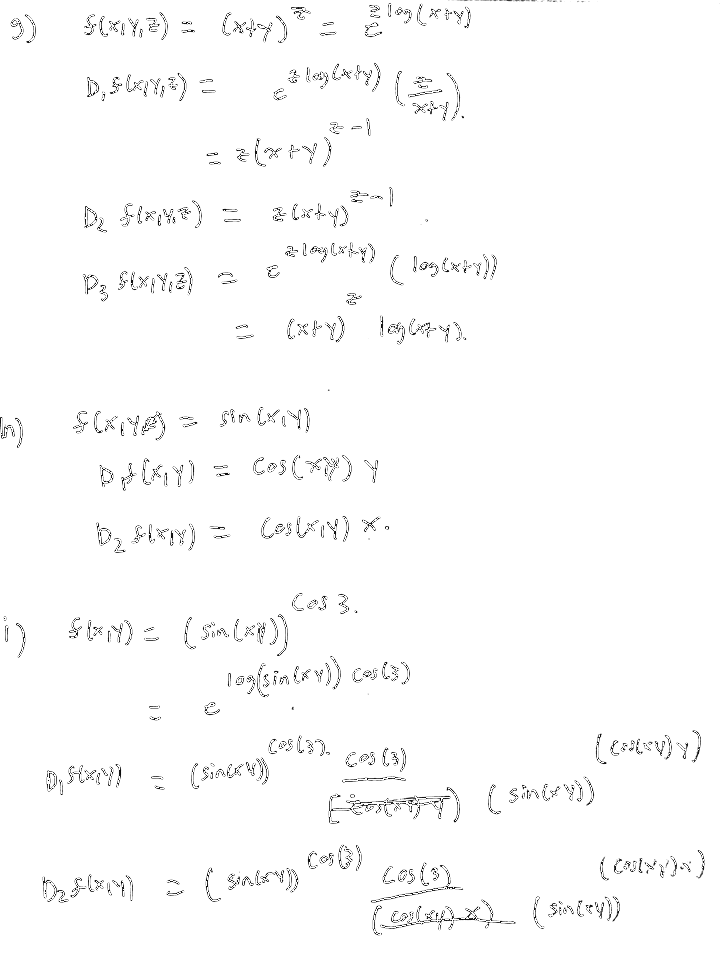 g) f(x,y,z) = (x+y)^z = e^{z log(x+y)}
D₁f(x,y,z) = e^{z log(x+y)} (z/(x+y)).
= z(x+y)^{z-1}
D₂ f(x,y,z) = z(x+y)^{z-1}.
D₃ f(x,y,z) = e^{z log(x+y)} (log(x+y))
= (x+y)^z log(x+y).
h) f(x,y,z) = sin(x,y)
D₁f(x,y) = cos(xy) y
D₂ f(x,y) = cos(x,y) x.
i) f(x,y) = (sin(xy))^{cos 3}.
= e^{log(sin(xy)) cos(3)}
D₁f(x,y) = (sin(xy))^{cos(3)} cos(3) (cos(xy) y) / (sin(xy))
D₂f(x,y) = (sin(xy))^{cos(3)} cos(3) (cos(xy) x) / (cos(xy) x) (sin(xy))